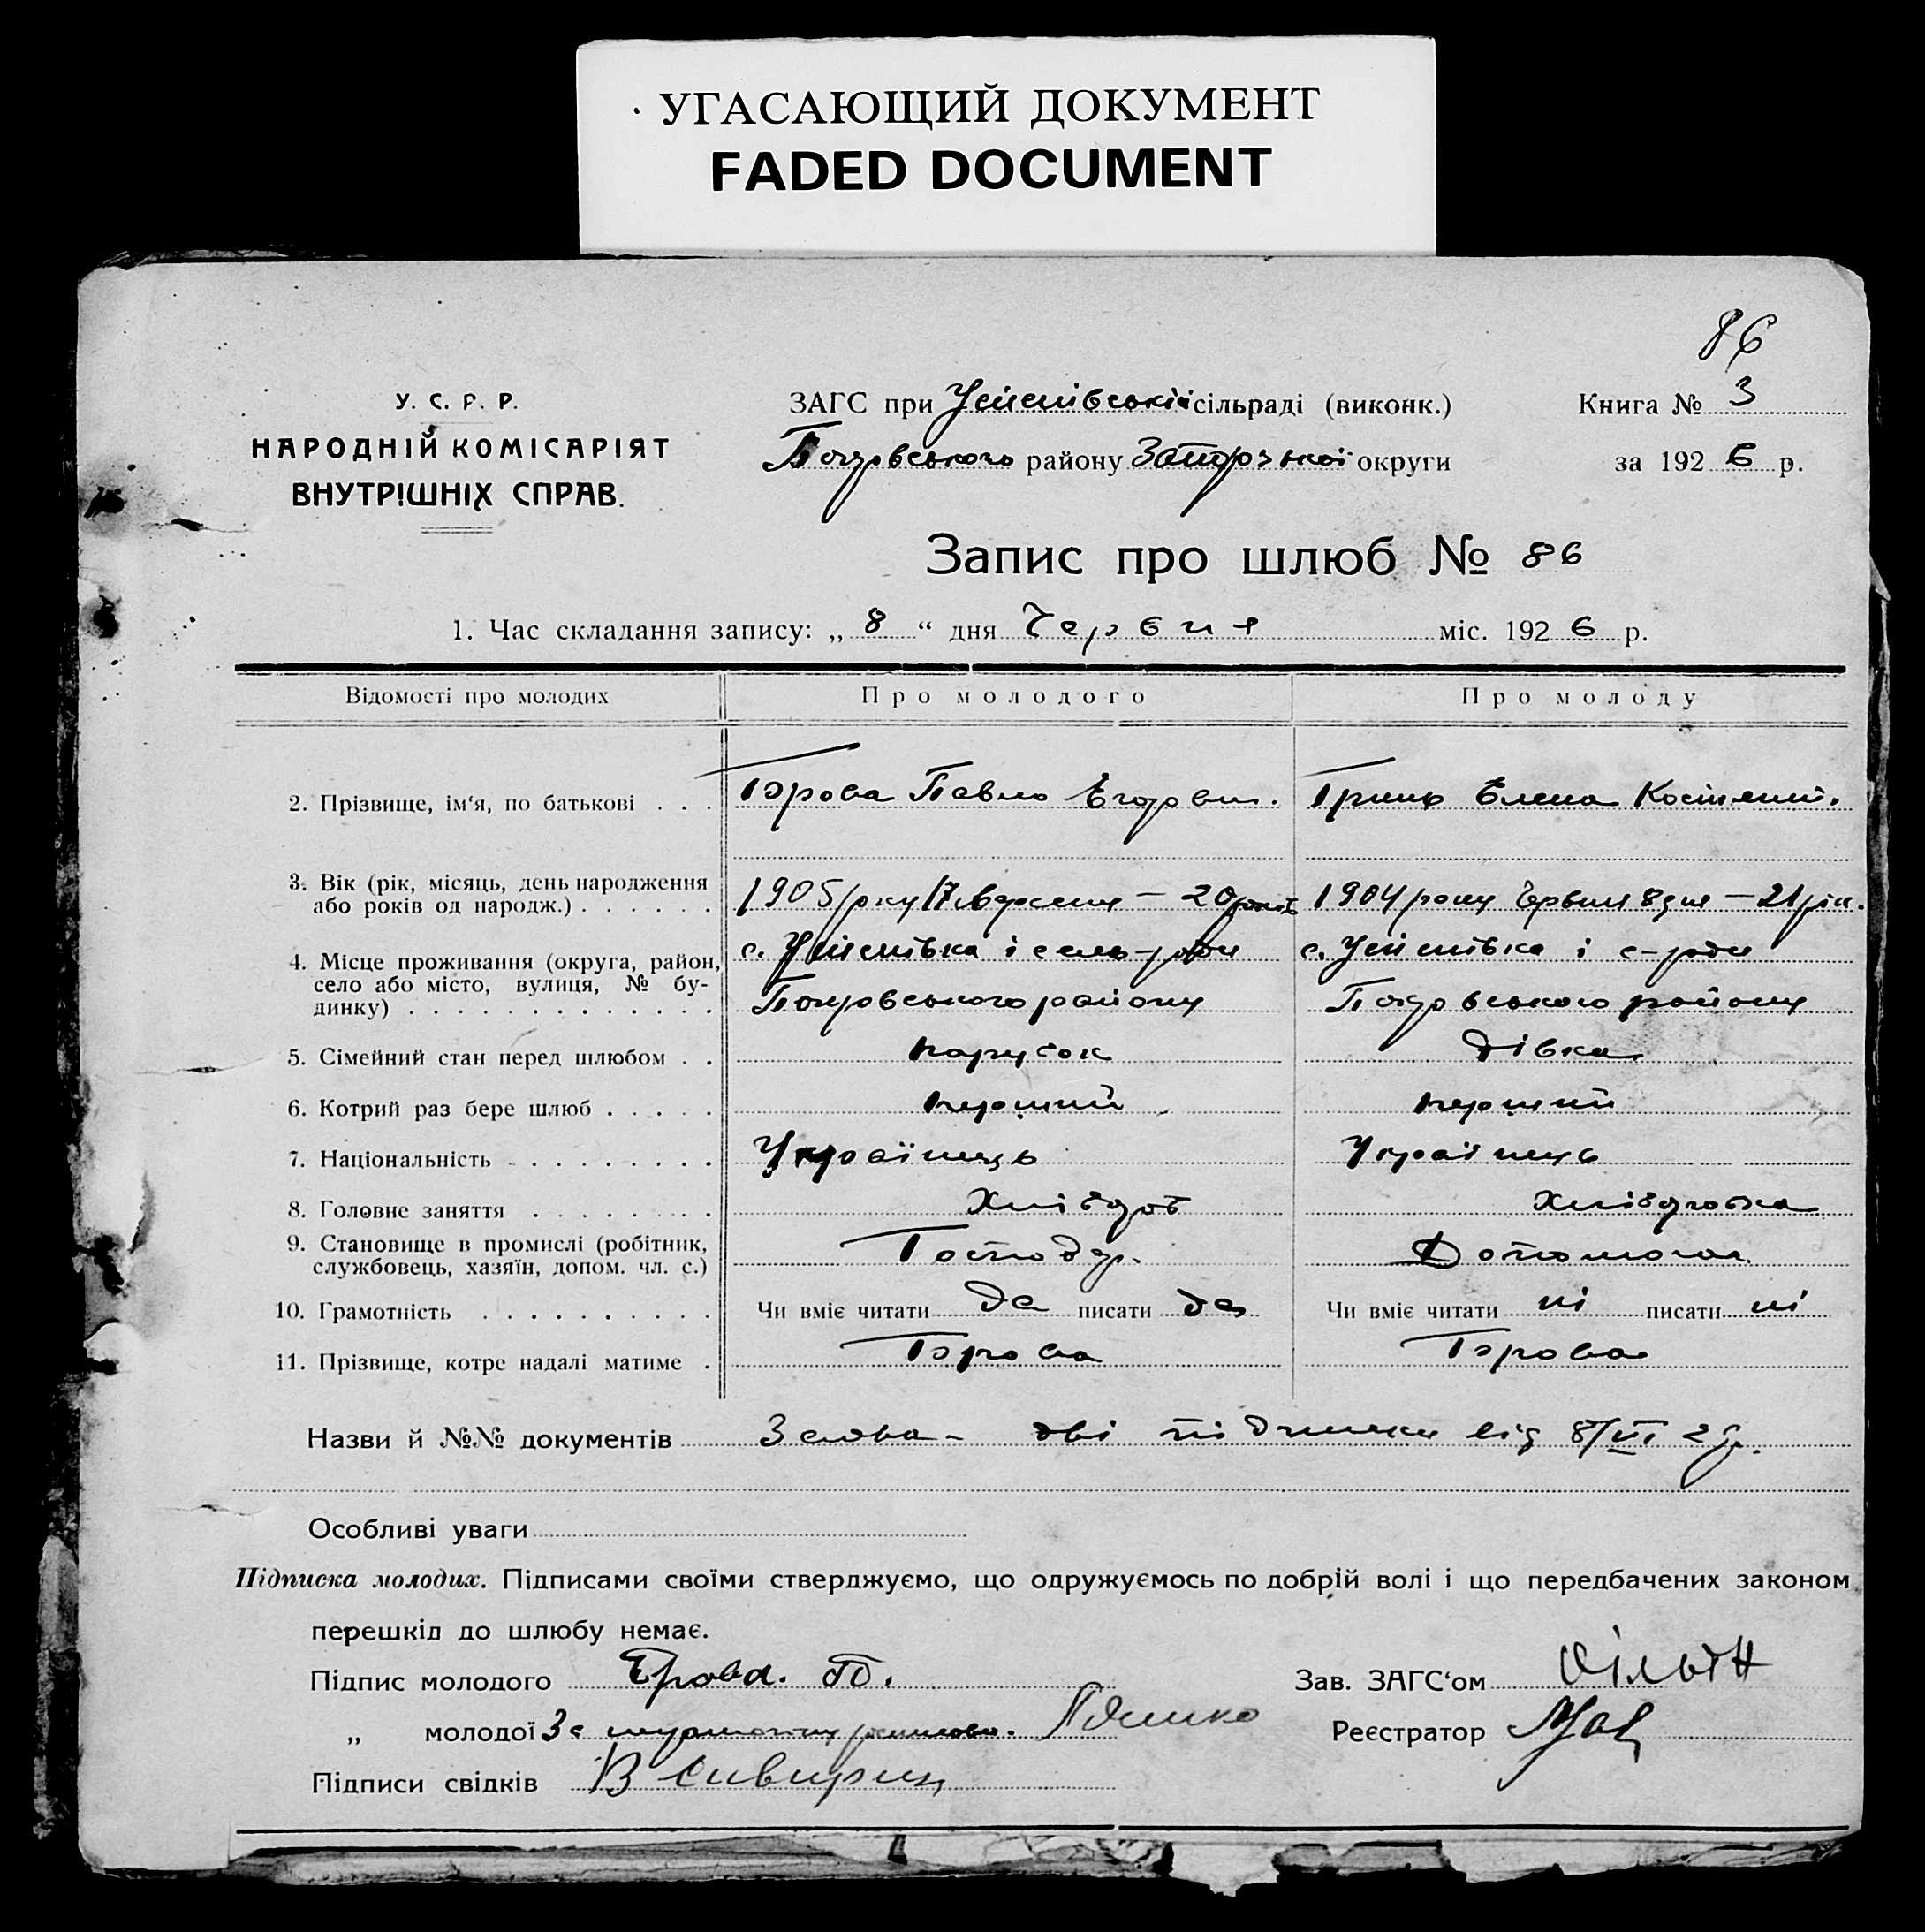 УГАСАЮЩИЙ ДОКУМЕНТ
FADED DOCUMENT
86
У. С. Р. Р.
НАРОДНІЙ КОМІСАРІЯТ
ВНУТРІШНІХ СПРАВ.
ЗАГС при Успенівській сільраді (виконк.)
Покровського району Запорізької округи
Книга № 3
за 1926 р.
Запис про шлюб № 86
1. Час складання запису: „ 8 “ дня Червня міс. 1926 р.
Відомості про молодих Про молодого Про молоду
2. Прізвище, ім‘я, по батькові . . . Павло Егоров. Гринь Елена Костянт.
3. Вік (рік, місяць, день народження
або років од народж.) . . . . . . 1905 року 17 — 20 років 1904 року Червня 8 дня — 21 рік.
4. Місце проживання (округа, район,
село або місто, вулиця, № бу-
динку) . . . . . . . . . . . . .
с. Успенівка і сель-ради
Покровського району
с. Успенівка і с-ради
Покровського району
5. Сімейний стан перед шлюбом . . парубок дівка
6. Котрий раз бере шлюб . . . . . перший перший
7. Національність . . . . . . . . . Українець Українець
8. Головне заняття . . . . . . . . Хлібороб Хліборобка
9. Становище в промислі (робітник,
службовець, хазяїн, допом. чл. с.)
Господар. Допомога
10. Грамотність . . . . . . . . . . Чи вміє читати да писати да Чи вміє читати ні писати ні
11. Прізвище, котре надалі матиме .
Назви й №№ документів Заява - дві підписки від 8/VI 26 р.
Особливі уваги
Підписка молодих. Підписами своїми стверджуємо, що одружуємось по добрій волі і що передбачених законом
перешкід до шлюбу немає.
Підпис молодого
Зав. ЗАГС‘ом
„ молодої За неграмотну
Реєстратор
Підписи свідків В